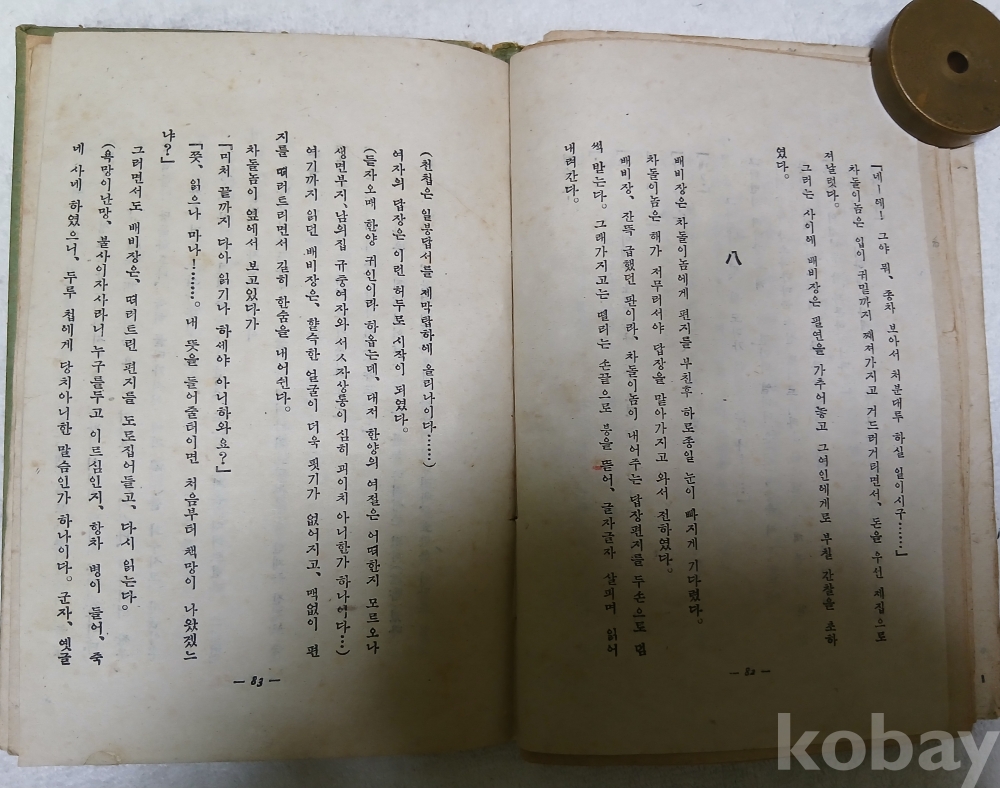 「네―헤! 그야 뭐, 종차 보아서 처분대루 하실 일이시구……」
차돌이놈은 입이 귀밑까지 째져가지고 거드러거리면서, 돈을 우선 제집으로
져날렀다。
그러는 사이에 배비장은 필연을 가추어놓고 그여인에게로 부칠 간찰을 초하
였다。
八
배비장은 차돌이놈에게 편지를 부친후 하로종일 눈이 빠지게 기다렸다。
차돌이놈은 해가 저무러서야 답장을 맡아가지고 와서 전하였다。
배비장、잔뜩 급했던 판이라、차돌이놈이 내어주는 답장편지를 두손으로 덤
썩 받는다。그래가지고는 떨리는 손글으로 봉을 뜯어、글자글자 살피며 읽어
내려간다。
— 82 —
(천첩은 일봉답서를 제막탑하에 올리나이다……)
여자의 답장은 이런 허두로 시작이 되였다。
(듣자오매 한양 귀인이라 하옵는데、대저 한양의 여절은 어떠한지 모르오나
생면부지、남의집 규중여자와 서ㅅ자상통이 심히 괴이치 아니한가 하나이다…)
여기까지 읽던 배비장은、핼쓱한 얼굴이 더욱 핏기가 없어지고、맥없이 편
지를 떠러트리면서 길히 한숨을 내어쉰다。
차돌놈이 옆에서 보고있다가
「미처 끝까지 다아 읽기나 하세야 아니하와요?」
「쭛、읽으나 마나!……。내 뜻을 들어줄터이면 처음부터 책망이 나왔겠느
냐?」
그러면서도 배비장은、떠리트린 편지를 도로집어들고、다시 읽는다。
(욕망이난망、불사이자사라니 누구를두고 이르심인지、항차 병이 들어、죽
네 사네 하였으니、두루 첩에게 당치아니한 말슴인가 하나이다。군자、옛글
— 83 —
kobay